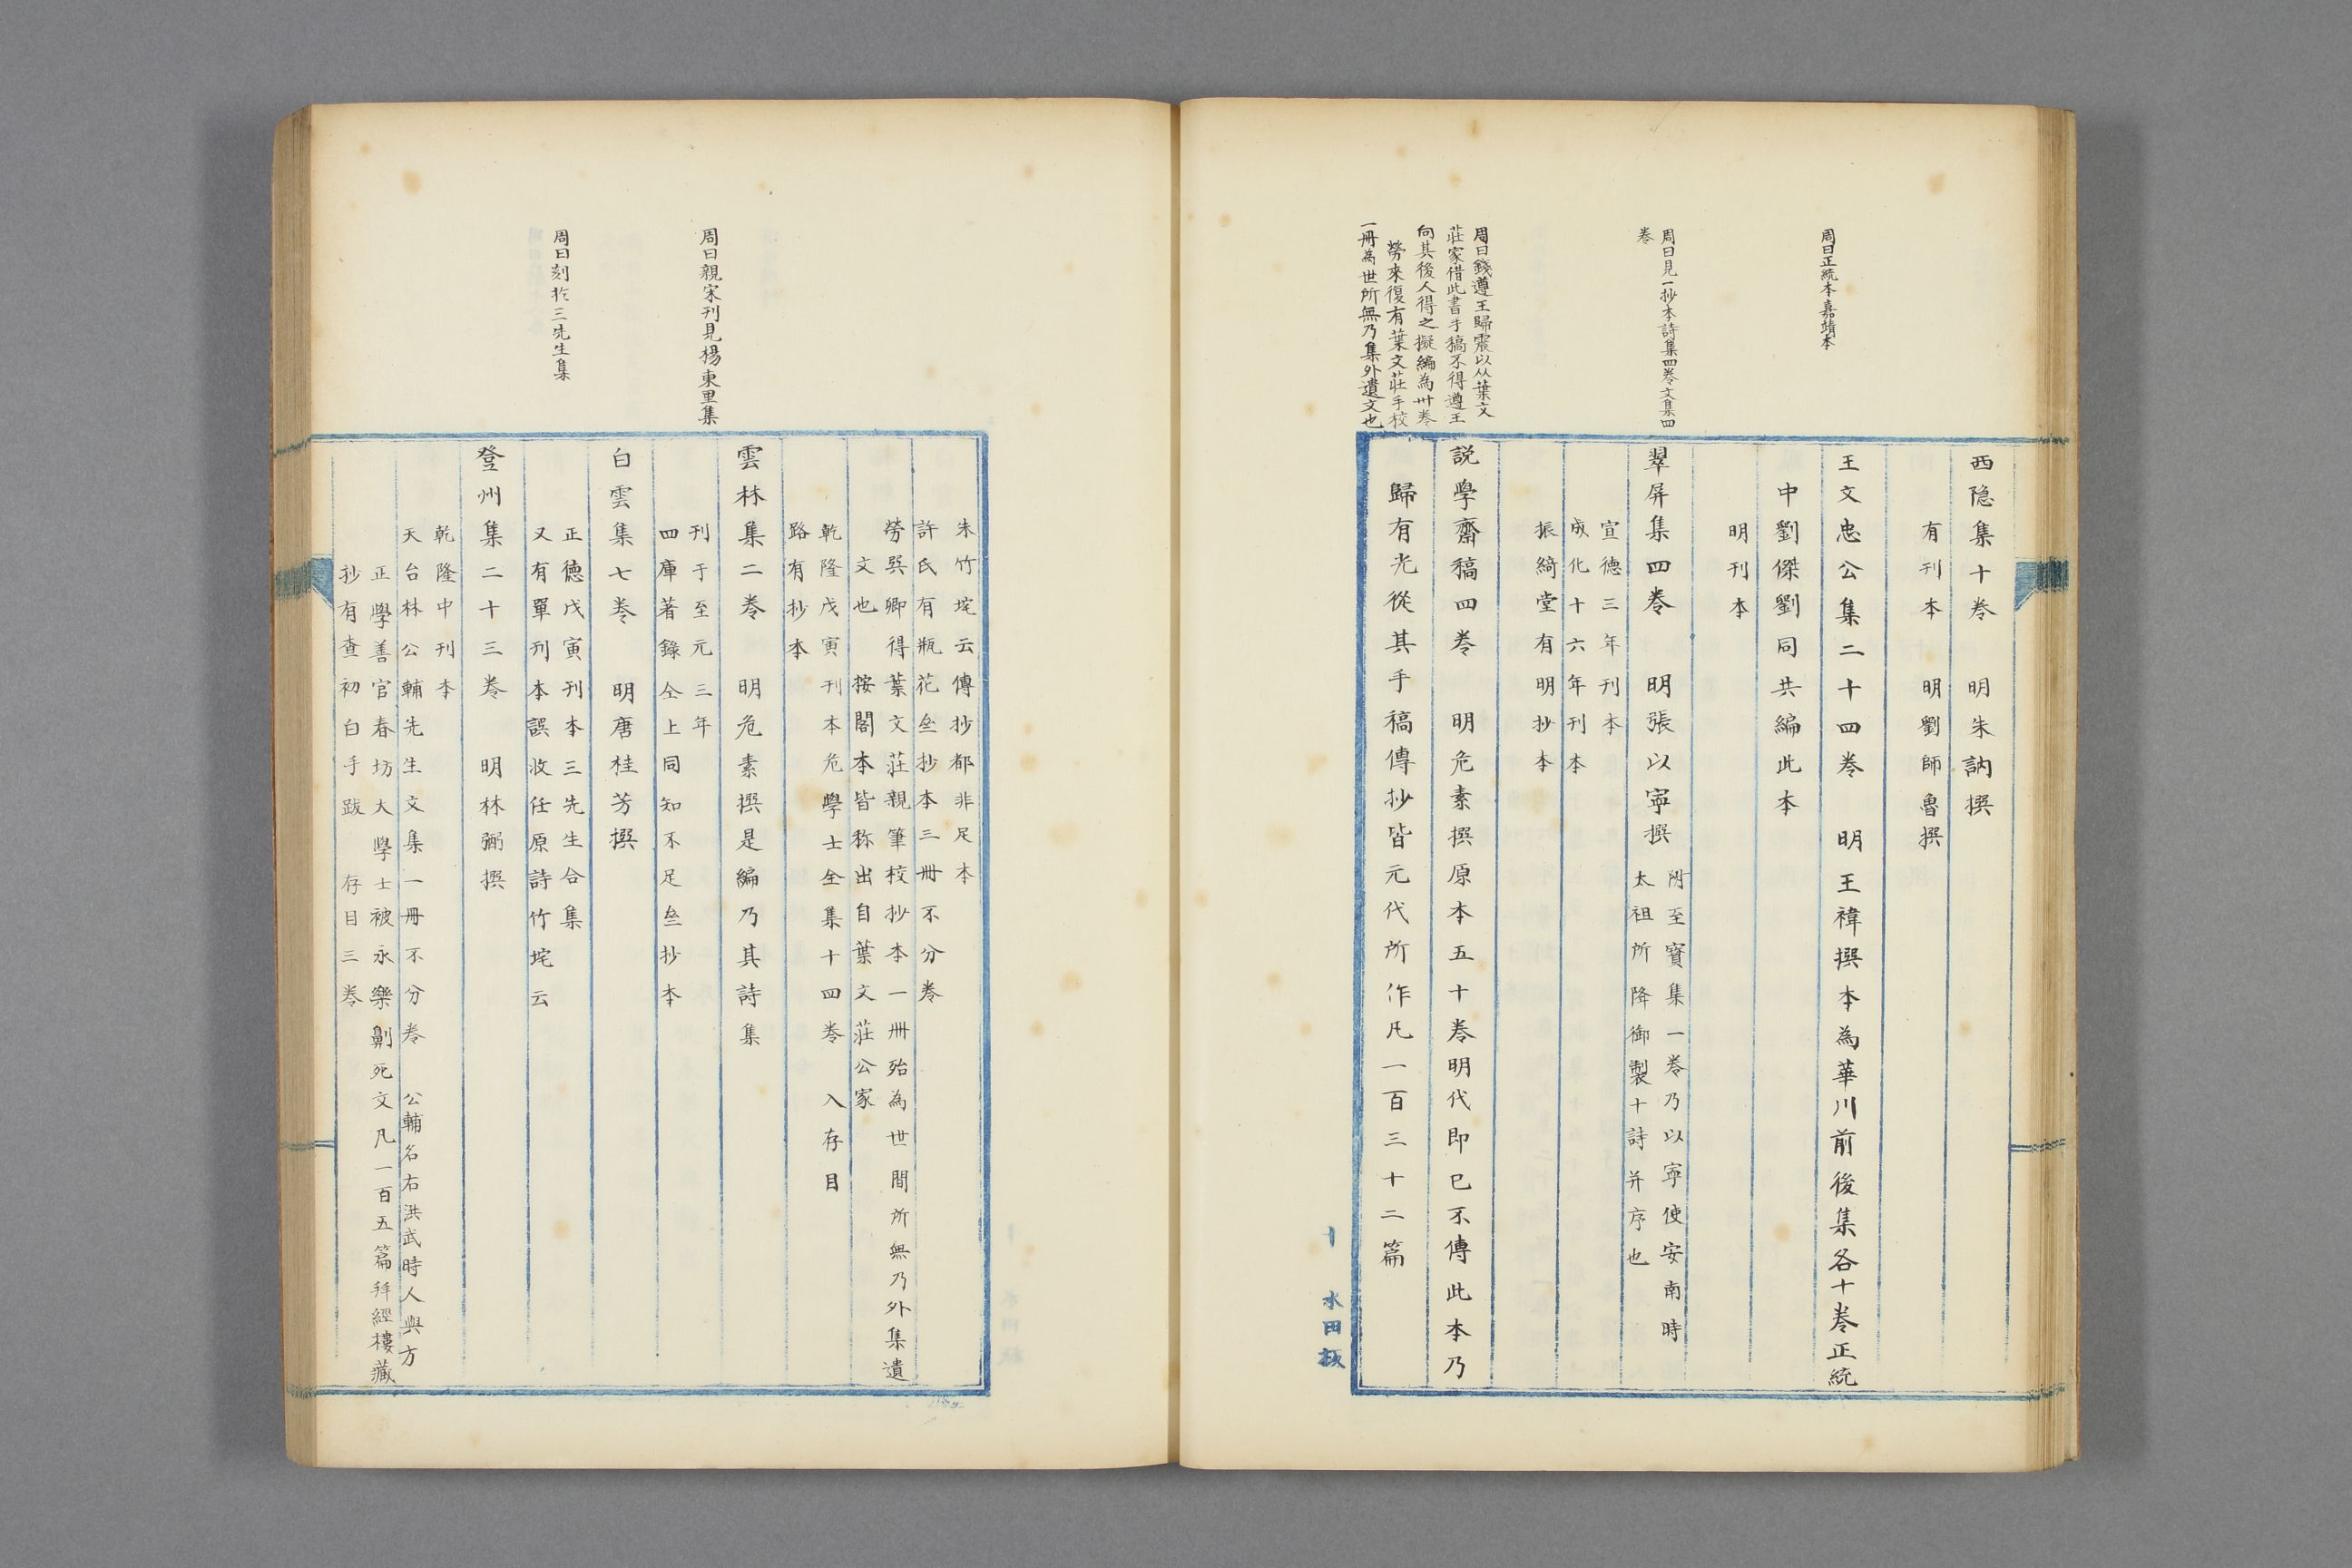 周曰正統本嘉靖本
周曰見一抄本詩集四卷文集四
卷
周曰錢遵王歸震以从葉文
莊家借此書手稿不得遵王
向其後人得之擬編為卅卷
勞來復有葉文莊手校
一冊為世所無乃集外遺文也
西隐集十卷　明朱訥撰
有刊本　明劉師魯撰
王文忠公集二十四卷　明王褘撰本為華川前後集各十卷正統
中劉傑劉同共編此本
明刊本
翠屏集四卷　明張以寧撰
附至寶集一卷乃以寧使安南時
太祖所降御製十詩并序也
宣德三年刊本
成化十六年刊本
振綺堂有明抄本
説學齋稿四卷　明危素撰原本五十卷明代即已不傳此本乃
歸有光從其手稿傳抄皆元代所作凡一百三十二篇
十
水田板
周曰親宋刊見楊東里集
周曰刻於三先生集
朱竹垞云傳抄都非足本
許氏有瓶花亝抄本三冊不分卷
勞巽卿得葉文莊親筆校抄本一冊殆為世間所無乃外集遺
文也　按閣本皆称出自葉文莊公家
乾隆戊寅刊本危學士全集十四卷　入存目
路有抄本
雲林集二卷　明危素撰是編乃其詩集
刊于至元三年
四庫著錄仝上同知不足亝抄本
白雲集七卷　明唐桂芳撰
正德戊寅刊本三先生合集
又有單刊本誤收任原詩竹垞云
登州集二十三卷　明林弼撰
乾隆中刊本
天台林公輔先生文集一冊不分卷　公輔名右洪武時人與方
正學善官春坊大學士被永樂劓死文凡一百五篇拜經樓藏
抄有查初白手跋　存目三卷